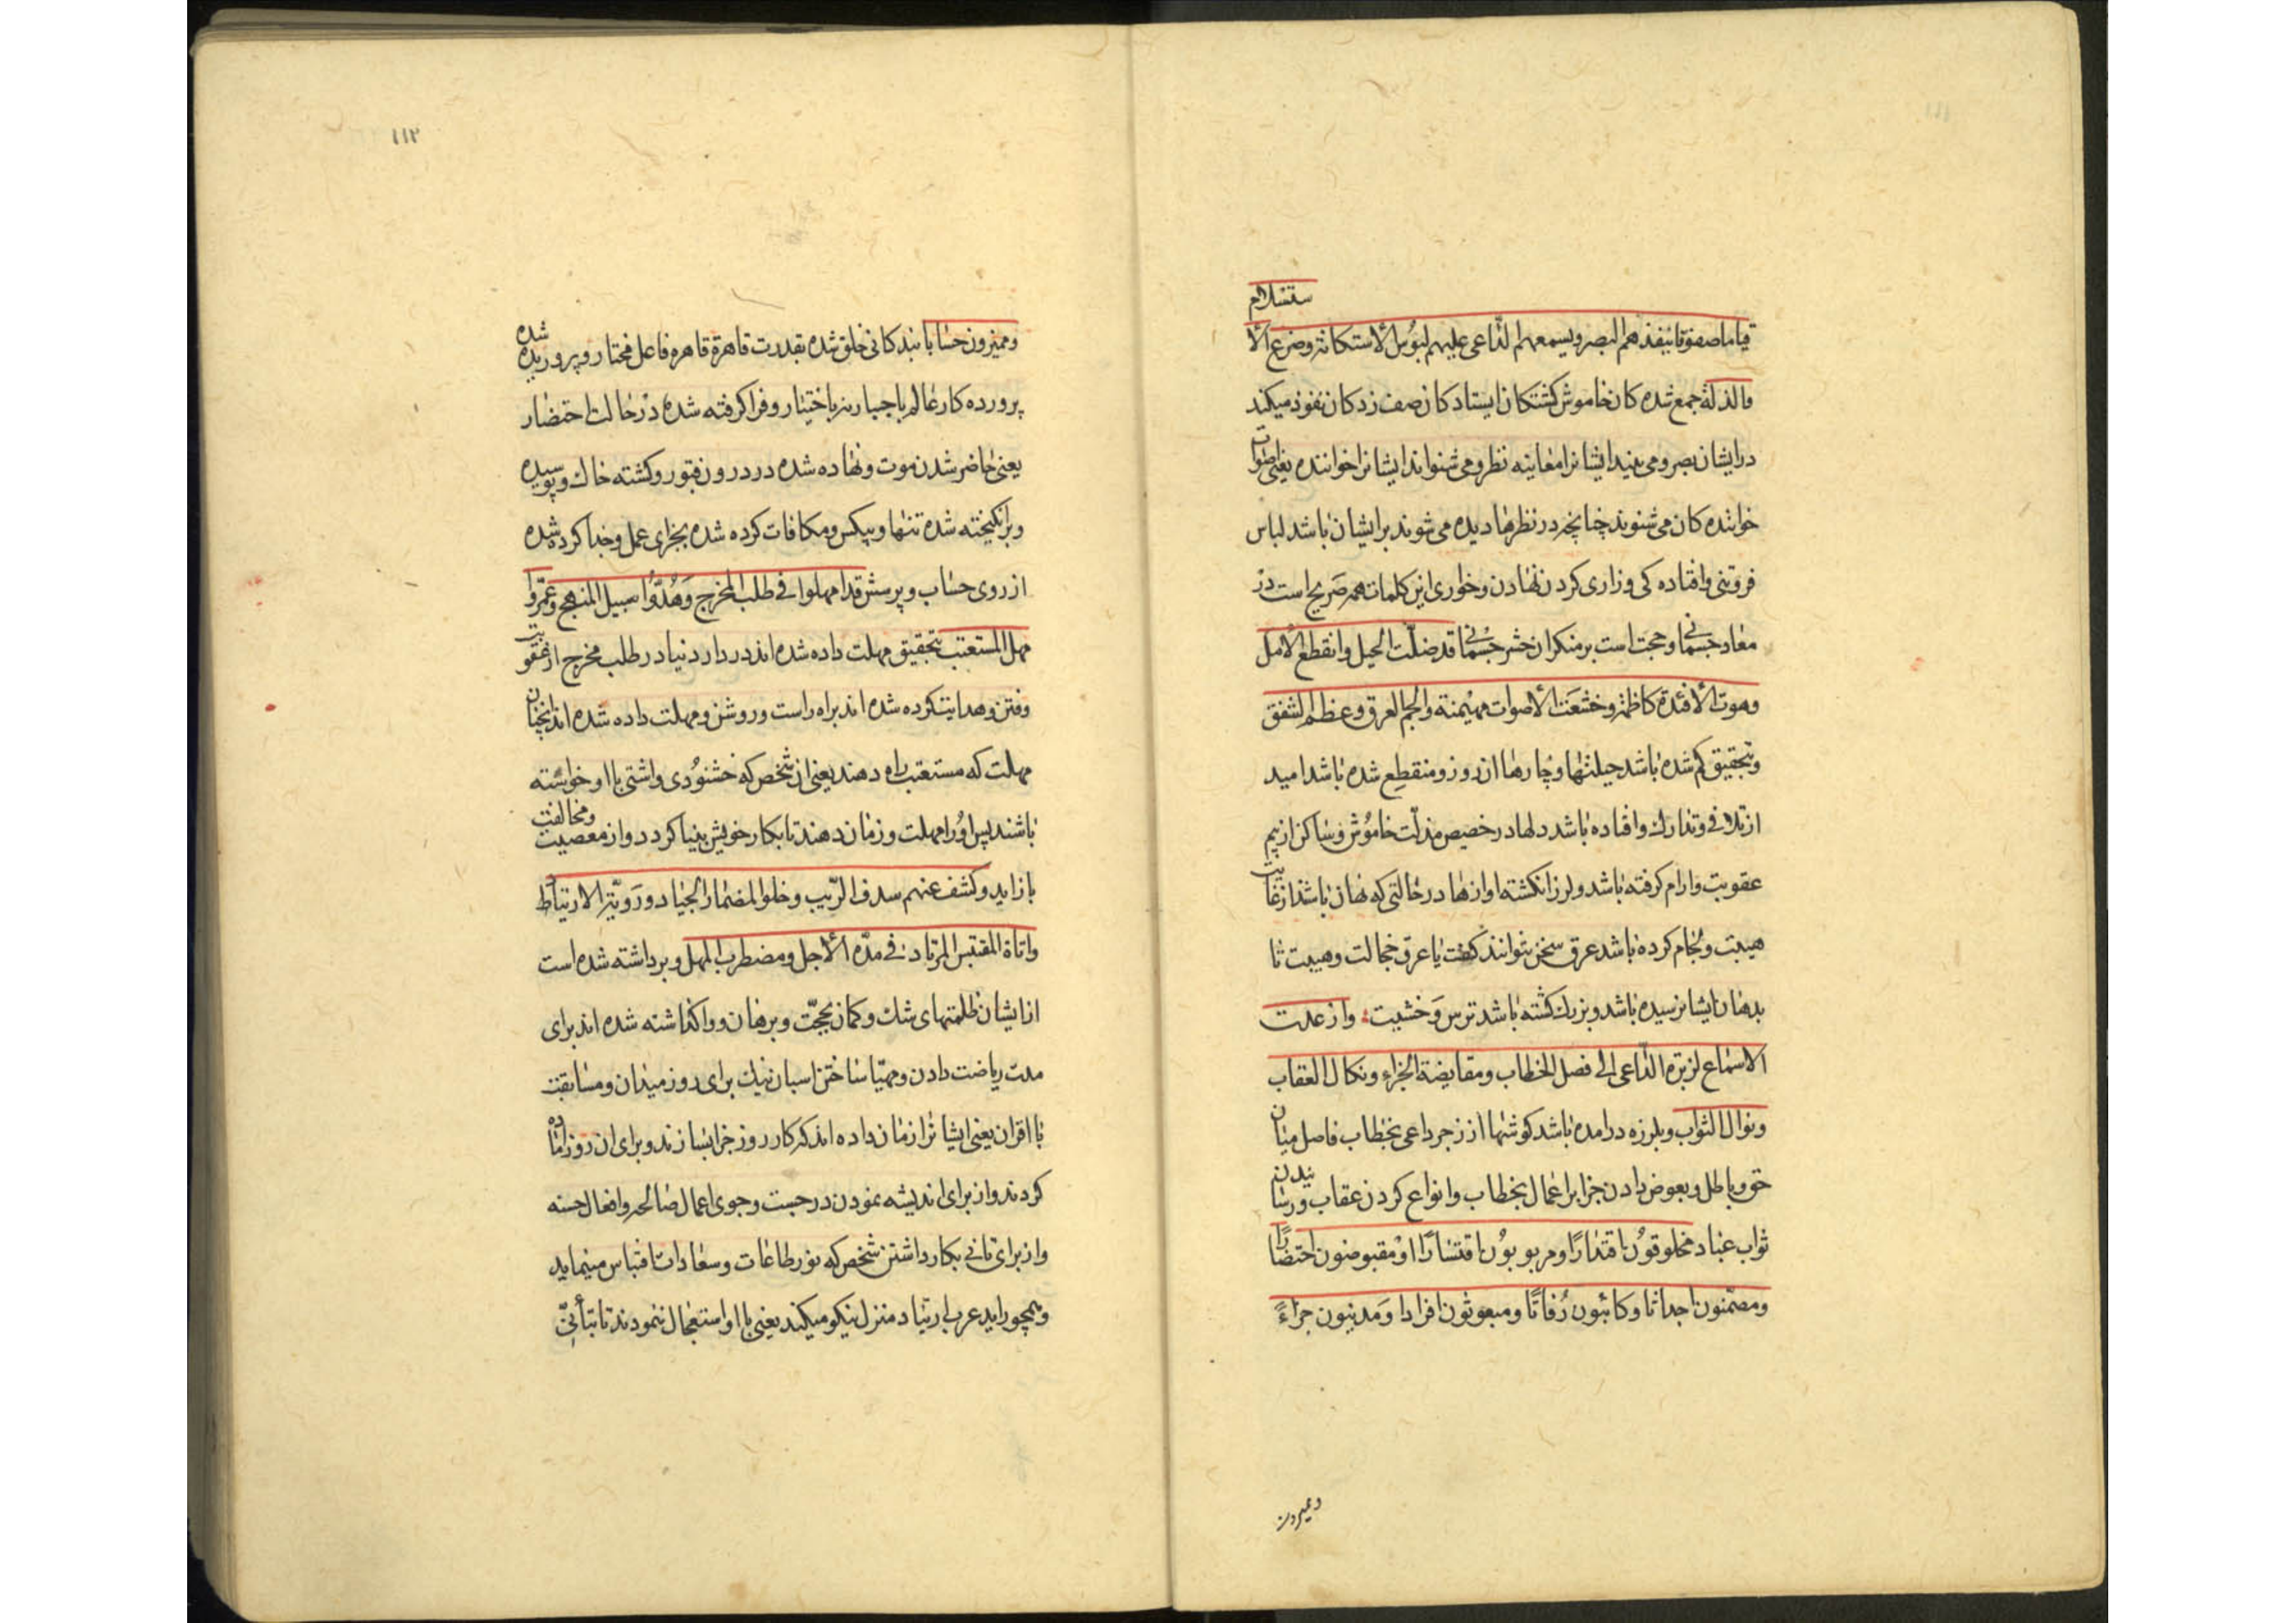 ستسلام
قیاما صفوفا ینفذهم البصر و یسمعهم الداعی علیهم لبوس الاستکانة و ضرع الا
و الذلة جمع شده کان خاموش کشتکان ایستادکان صف زدکان نفوذ میکند
در ایشان بصر و می بیند ایشانرا معاینه نظر و می شنواند ایشانرا خواننده یعنی اصوات
خوانندە کان می شنوند چنانچه در نظرها دیده می شوند بر ایشان باشد لباس
فروتنی و افتاده کی و زاری کردن نهادن و خواری این کلمات همه صریح است در
معاد جسمانی و حجت است بر منکران حشر جسمانی قد ضلّت الحیل و انقطع الامل
و هوت الأفئدة کاظمة و خشعت الأصوات مهیمنة و الجم العرق و عظم الشفق
و بتحقیق کم شده باشد حیلتها و چارها ان روز و منقطع شده باشد امید
از تلافی و تدارك و افتاده باشد دلها در حضیض مذلّت خاموش و ساکن از بیم
عقوبت و ارام کرفته باشد و لرزان کشته اوازها در حالتی که نهان باشد از غایت
هیبت و لجام کرده باشد عرق سخن نتوانند کفت یا عرق خجالت و هیبت تا
بدهان ایشان رسیده باشد و بزرك کشته باشد ترس و خشیت و ارعدت
الاسماع لزبرة الداعی الی فصل الخطاب و مقایضة الجزاء و نکال العقاب
و نوال الثواب و بلرزه درامده باشد کوشها از زجر داعی بخطاب فاصل میان
حق و باطل و بعوض دادن جزا بر اعمال بخطاب و انواع کردن عقاب و رسانیدن
ثواب عباد مخلوقون اقتدارًا و مربوبون اقتسارًا و مقبوضون احتضارًا
و مضمّنون اجداثا و کائنون رُفاتًا و مبعوثون افرادا و مدینون جزاءً
و ممیزون
١١٢
و ممیزون حسابا بندکانی خلق شده بقدرت قاهرة قاهره فاعل مختار و پروریده شده
پرورده کار عالم باجبار نه باختیار و فرا کرفته شده در حالت احتضار
یعنی حاضر شدن موت و نهاده شده در درون قبور و کشته خاك و پوسیده
و برانکیخته شده تنها و بیکس و مکافات کرده شده بجزای عمل و جدا کرده شده
از روی حساب و پرسش قد امهلوا فی طلب المخرج و هُدُوا سبیل المنهج و عمّروا
مهل المستعتب بتحقیق مهلت داده شده اند در دار دنیا در طلب مخرج از عقوبت
و فتن و هدایت کرده شده اند براه راست و روشن و مهلت داده شده اند انچنان
مهلت که مستعتب راه دهند یعنی ان شخص که خشنودی و اشتی با او خواسته
باشند پس او را مهلت و زمان دهند تا بکار خویش بینا کردد و از معصیت و مخالفت
باز اید و کشف عنهم سدف الریب و خلوا لمضمار الجیاد و رویّة الارتیاط
و اناة المقتبس المرتاد فی مدّة الأجل و مضطرب المهل و برداشته شده است
از ایشان ظلمتهای شك و کمان بحجّت و برهان و واکذاشته شده اند برای
مدت ریاضت دادن و مهیّا ساختن اسبان نیك برای روز میدان و مسابقت
با اقران یعنی ایشانرا زمان داده اند که کار روز جزا بسازند و برای ان روز اماده
کردند و از برای اندیشه نمودن در جست و جوی اعمال صالحه و افعال حسنه
و از برای تانی بکار داشتن شخص که نور طاعات و سعادات اقتباس مینماید
و همچو راید عرب ارتیاد منزل نیکو میکند یعنی با او استعجال ننمودند تا بتأنّی